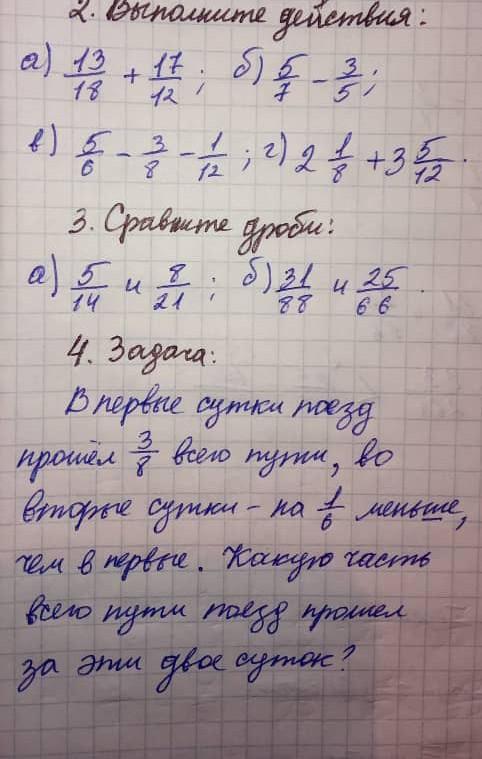 2. Выполните действия:
а) 13/18 + 17/12 ; б) 5/7 - 3/5 ;
в) 5/6 - 3/8 - 1/12 ; г) 2 1/8 + 3 5/12 .
3. Сравните дроби:
а) 5/14 и 8/21 ; б) 31/88 и 25/66 .
4. Задача:
В первые сутки поезд
прошёл 3/8 всего пути, во
вторые сутки - на 1/6 меньше,
чем в первые. Какую часть
всего пути поезд прошел
за эти двое суток?